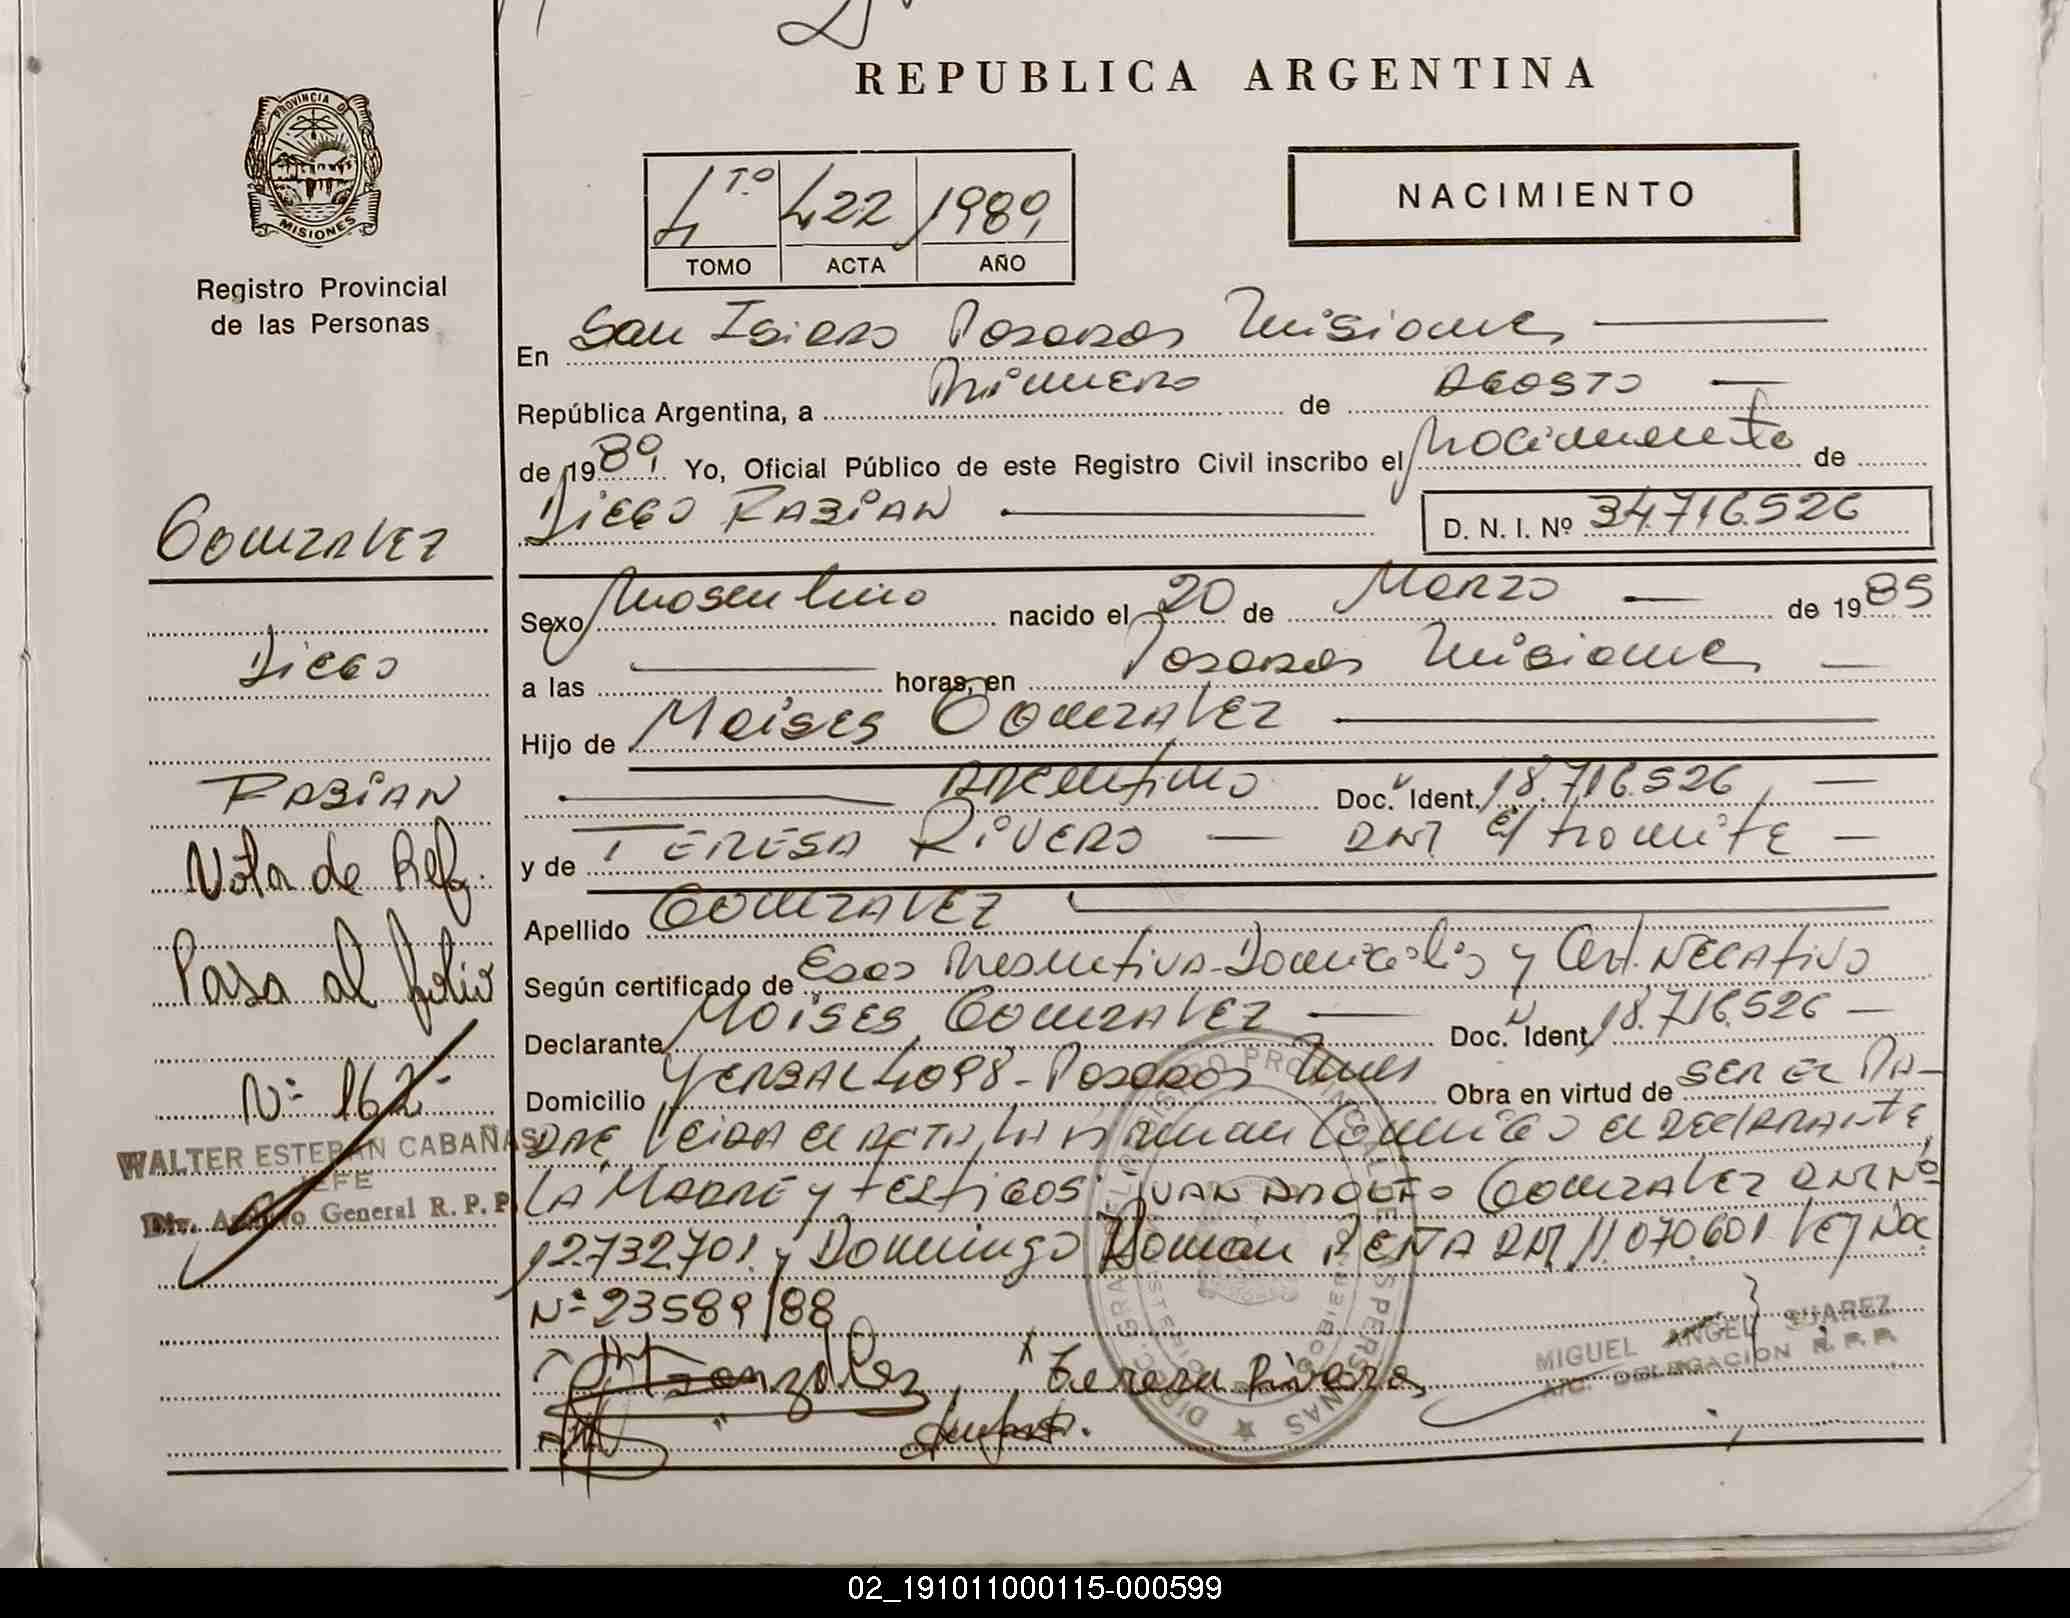 REPUBLICA ARGENTINA
PROVINCIA D
MISIONES
Registro Provincial
de las Personas
4 TO 422 1989
TOMO ACTA AÑO
NACIMIENTO
En San Isidro Posadas Misiones
República Argentina, a Primero de AGOSTO
de 1989 Yo, Oficial Público de este Registro Civil inscribo el nacimiento de
DIEGO FABIAN D. N. I. Nº 34.716.526
Sexo masculino nacido el 20 de Marzo de 1989
a las horas, en Posadas Misiones
Hijo de Moises GONZALEZ
ARgentino Doc. Ident. 18.716.526
y de TERESA RIVERO DNI E/ tramite
Apellido GONZALEZ
Según certificado de Edad Presuntiva-Domicilio y Cert. NEGATIVO
Declarante MOISES GONZALEZ Doc. Ident. 18.716.526
Domicilio YERBAL 4098- Posadas Mnes Obra en virtud de SER EL PA-
DRE, LEIDA el ACTA, LA FIRMAN CONMIGO el DEClARANTE,
LA MADRE y TESTIGOS: JUAN ADOLFO GONZALEZ DNI Nº
12.732.701. y Domingo Roman PEÑA DNI 11.070.601. LEY Nac
Nº 23589/88
Gonzalez Teresa Rivero
GONZALEZ
DIEGO
FABIAN
Nota de Ref.
Pasa al folio
Nº 162-
WALTER ESTEBAN CABAÑAS
JEFE
Dir. Archivo General R. P. P.
MIGUEL ANGEL SUAREZ
A/C. DELEGACION R. P. P.
02_191011000115-000599